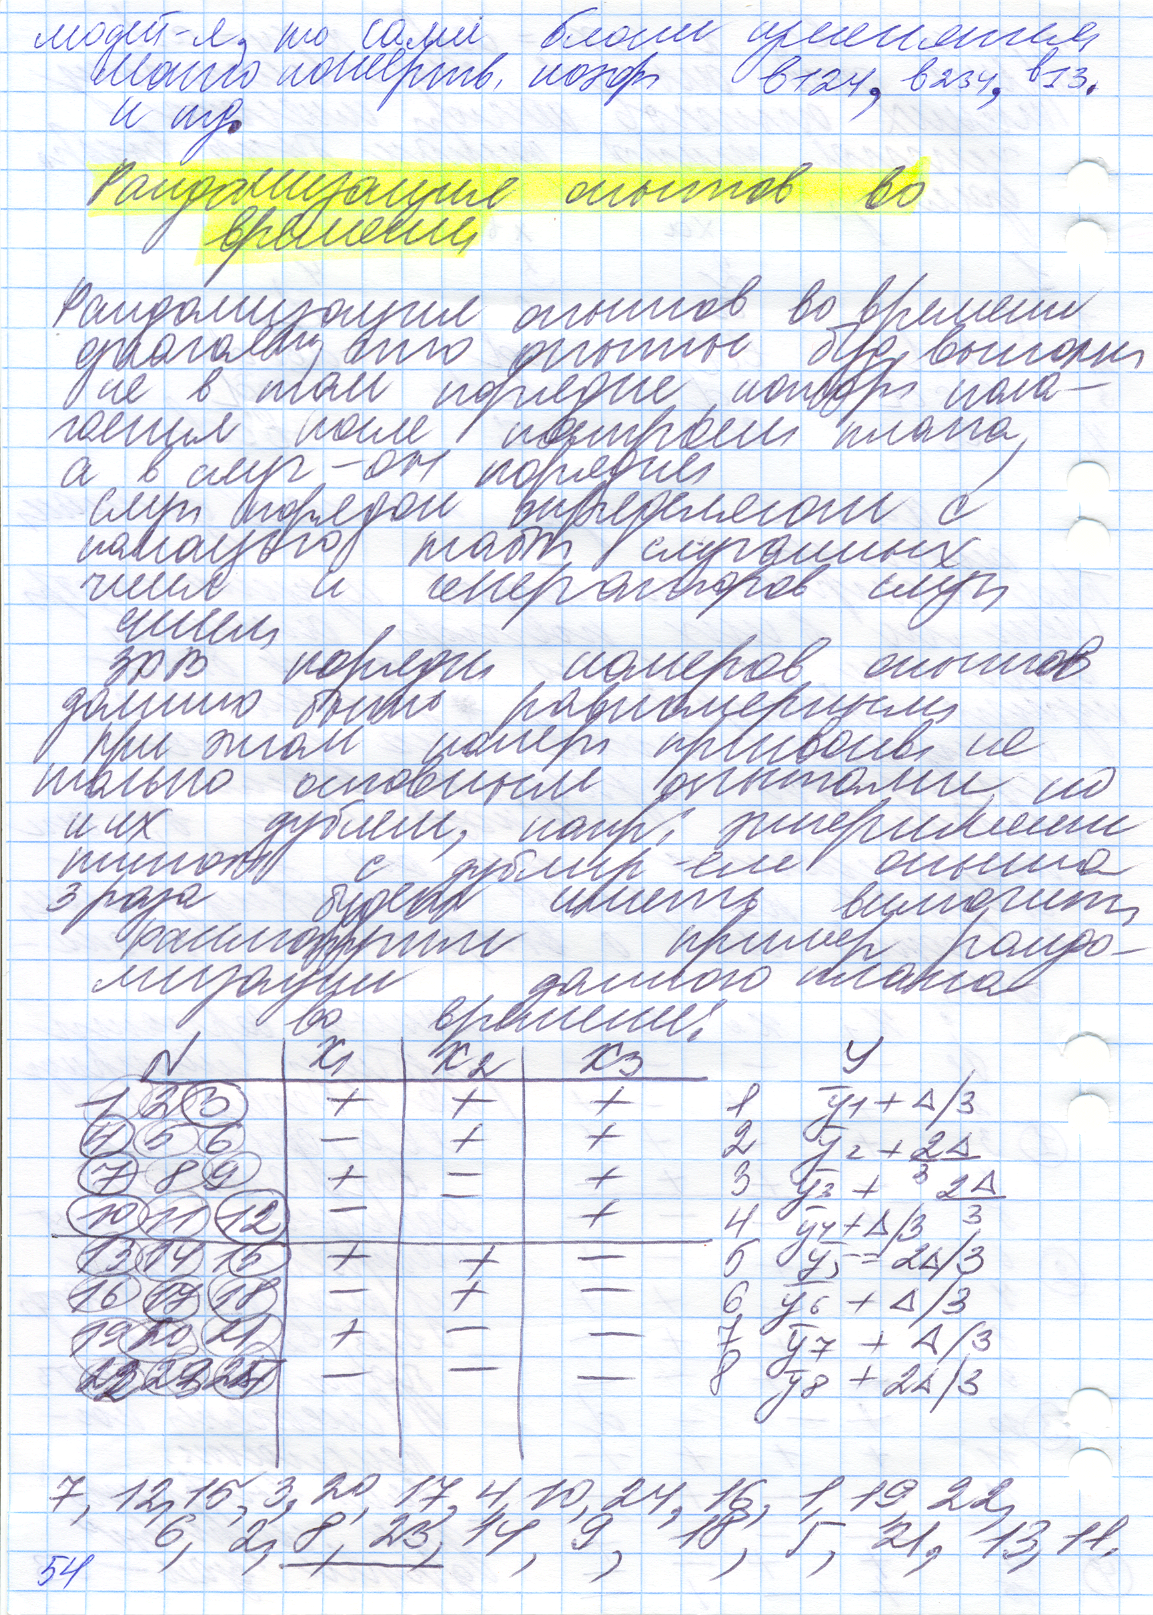 то сами блоки
b124, b234, b13.
и тд.
Рандомизация опытов во
времени
Рандомизация опытов во времени
что опыты буд
не в том порядке котор пола-
после построен плана,
а в случ-ом порядке
случ порядок определяют с
табл случайных
чисел и генераторов случ
чисел
порядк номеров опытов
должно быть равномерным
при этом номера присваив не
только основным опытами, но
и их дублям, напр:
с дублир-ем опыта
3 раза будет иметь
Рассмотрим пример рандо-
мизации данного плана
во времени:
N x1 x2 x3 y
1 2 3 + + + 1 y1 + Δ/3
4 5 6 - + + 2 y2 + 2Δ/3
7 8 9 + - + 3 y3 + 2Δ/3
10 11 12 - - + 4 y4 + Δ/3
13 14 15 + + - 5 y5 = 2Δ/3
16 17 18 - + - 6 y6 + Δ/3
19 20 21 + - - 7 y7 + Δ/3
22 23 24 - - - 8 y8 + 2Δ/3
7, 12, 15, 3, 20, 17, 4, 10, 24, 16, 1, 19, 22,
6, 2, 8, 23, 14, 9, 18, 5, 21, 13, 11.
54